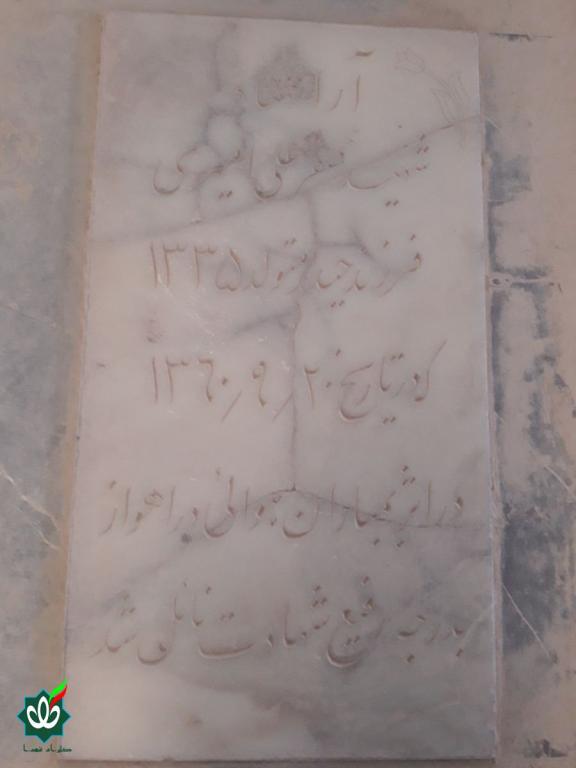 آرامگاه
شهید صفر علی
فرزند حیدر متولد ۱۳۳۵
که در تاریخ ۱۳۶۰/۹/۲۰
در اثر بمباران هوائی در اهواز
بدرجه رفیع شهادت نائل شد